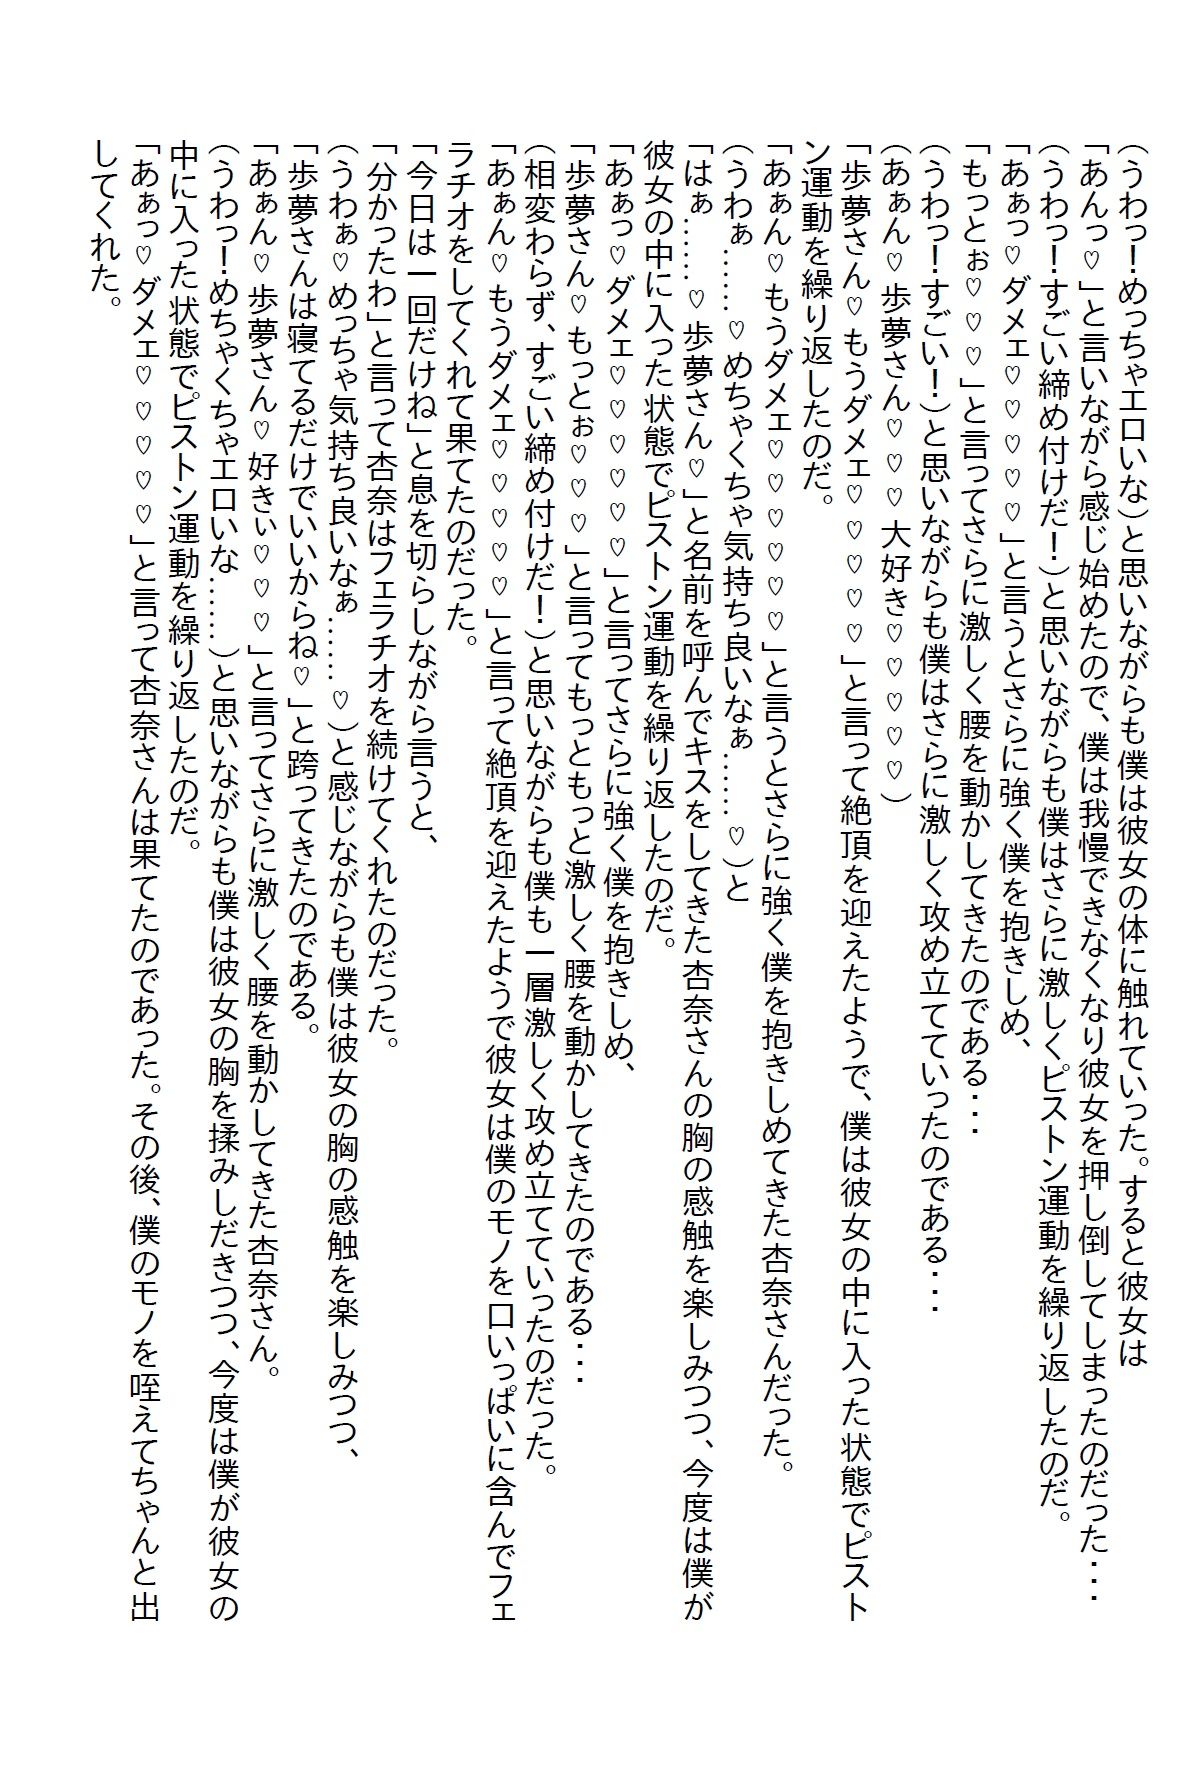 （うわっ！めっちゃエロいな）と思いながらも僕は彼女の体に触れていった。すると彼女は
「あんっ♡」と言いながら感じ始めたので、僕は我慢できなくなり彼女を押し倒してしまったのだった・・・
（うわっ！すごい締め付けだ！）と思いながらも僕はさらに激しくピストン運動を繰り返したのだ。
「あぁっ♡ダメェ♡♡♡♡♡」と言うとさらに強く僕を抱きしめ、
「もっとぉ♡♡♡」と言ってさらに激しく腰を動かしてきたのである・・・
（うわっ！すごい！）と思いながらも僕はさらに激しく攻め立てていったのである・・・
（あぁん♡歩夢さん♡♡♡大好き♡♡♡♡♡）
「歩夢さん♡もうダメェ♡♡♡♡♡」と言って絶頂を迎えたようで、僕は彼女の中に入った状態でピスト
ン運動を繰り返したのだ。
「あぁん♡もうダメェ♡♡♡♡♡♡」と言うとさらに強く僕を抱きしめてきた杏奈さんだった。
（うわぁ……♡めちゃくちゃ気持ち良いなぁ……♡）と
「はぁ……♡歩夢さん♡」と名前を呼んでキスをしてきた杏奈さんの胸の感触を楽しみつつ、今度は僕が
彼女の中に入った状態でピストン運動を繰り返したのだ。
「あぁっ♡ダメェ♡♡♡♡♡♡」と言ってさらに強く僕を抱きしめ、
「歩夢さん♡もっとぉ♡♡♡」と言ってもっともっと激しく腰を動かしてきたのである・・・
（相変わらず、すごい締め付けだ！）と思いながらも僕も一層激しく攻め立てていったのだった。
「あぁん♡もうダメェ♡♡♡♡♡」と言って絶頂を迎えたようで彼女は僕のモノを口いっぱいに含んでフェ
ラチオをしてくれて果てたのだった。
「今日は一回だけね」と息を切らしながら言うと、
「分かったわ」と言って杏奈はフェラチオを続けてくれたのだった。
（うわぁ♡めっちゃ気持ち良いなぁ……♡）と感じながらも僕は彼女の胸の感触を楽しみつつ、
「歩夢さんは寝てるだけでいいからね♡」と跨ってきたのである。
「あぁん♡歩夢さん♡好きぃ♡♡♡」と言ってさらに激しく腰を動かしてきた杏奈さん。
（うわっ！めちゃくちゃエロいな……）と思いながらも僕は彼女の胸を揉みしだきつつ、今度は僕が彼女の
中に入った状態でピストン運動を繰り返したのだ。
「あぁっ♡ダメェ♡♡♡♡♡」と言って杏奈さんは果てたのであった。その後、僕のモノを咥えてちゃんと出
してくれた。